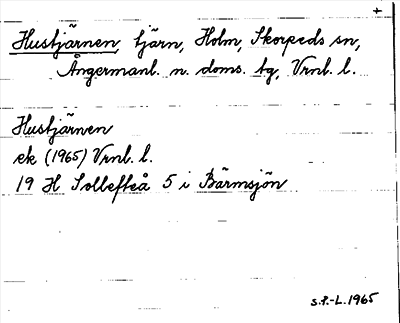 +
Hustjärnen, tjärn, Holm, Skorpeds sn,
Ångermanl. n. doms. tg, Vrnl. l.
Hustjärnen
ek (1965) Vrnl. l.
19 H Sollefteå 5 i Bärmsjön
S.P.-L. 1965